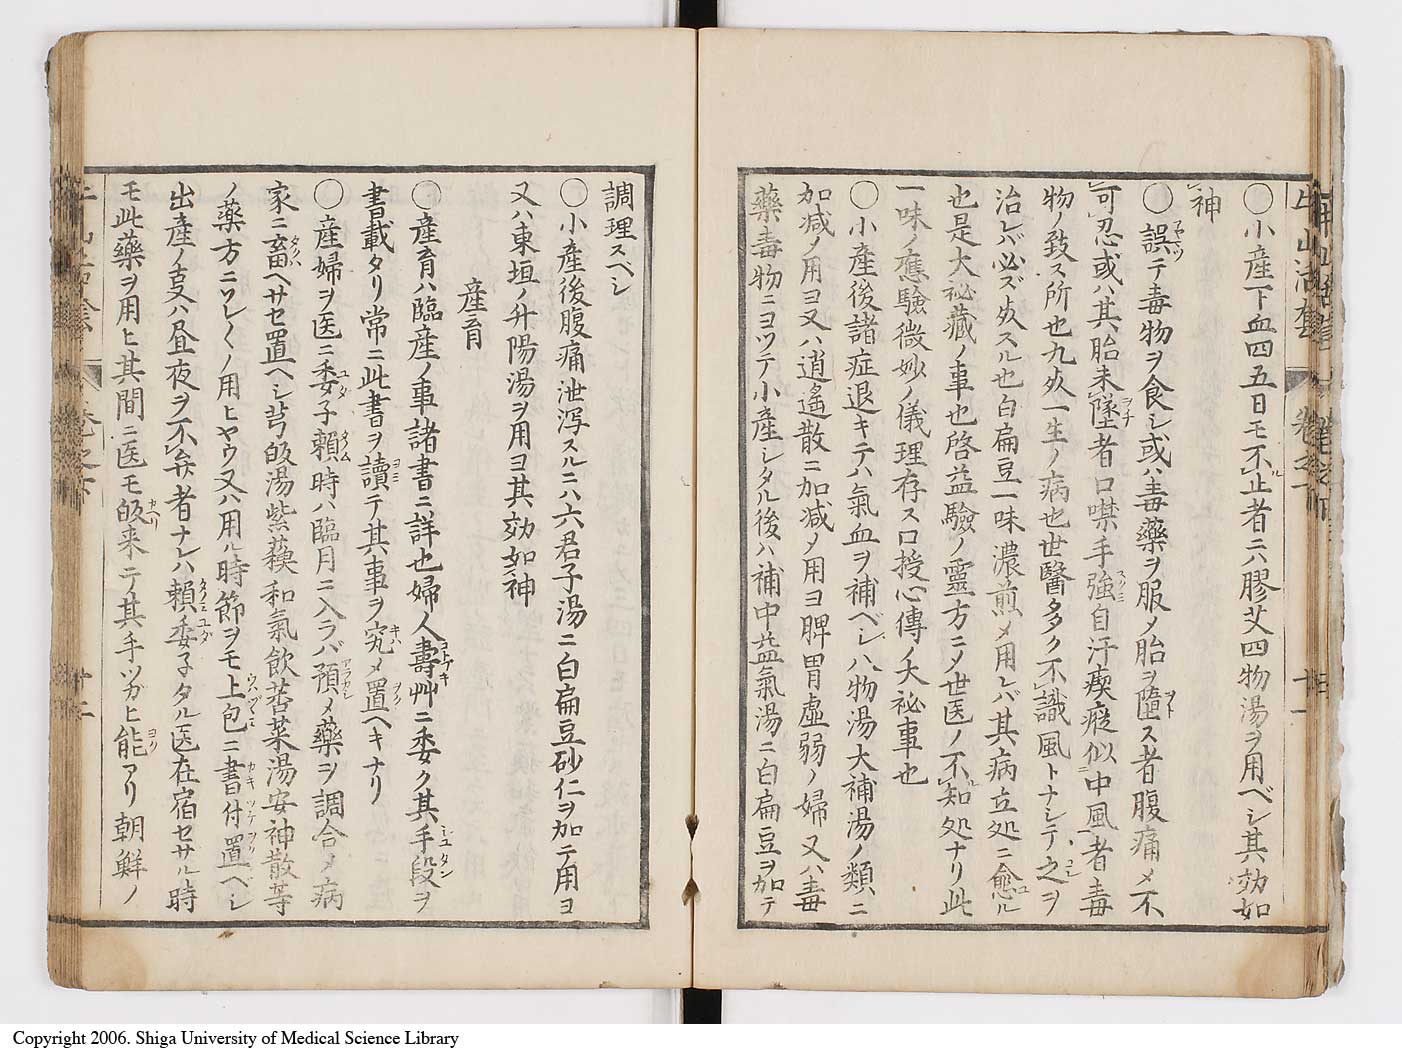 〇小産下血四五日モ不止者ニハ膠艾四物湯ヲ用ベシ其効如
神
〇誤テ毒物ヲ食シ或ハ毒薬ヲ服〆胎ヲ墮ス者腹痛〆不
可忍或ハ其胎未墜者口噤手強自汗瘈瘲似中風者毒
物ノ致ス所也九死一生ノ病也世醫多ク不識風トナシテ之ヲ
治レバ必ズ死スル也白扁豆一味濃煎〆用レバ其病立処ニ愈ル
也是大祕藏ノ事也啓益驗ノ靈方ニ〆世医ノ不知処ナリ此
一味ノ應驗微妙ノ儀理存ス口授心傳ノ大祕事也
〇小産後諸症退キテハ氣血ヲ補ベシ八物湯大補湯ノ類ニ
加減ノ用ヨ又ハ逍遙散ニ加減〆用ヨ脾胃虛弱ノ婦又ハ毒
藥毒物ニヨツテ小産シタル後ハ補中益氣湯ニ白扁豆ヲ加テ
調理スベシ
〇小産後腹痛泄瀉スルニハ六君子湯ニ白扁豆砂仁ヲ加テ用ヨ
又ハ東垣ノ升陽湯ヲ用ヨ其効如神
産育
〇産育ハ臨産ノ事諸書ニ詳也婦人壽艸ニ委ク其手段ヲ
書載タリ常ニ此書ヲ讀テ其事ヲ究〆置ヘキナリ
〇産婦ヲ医ニ委子頼時ハ臨月ニ入ラバ預〆藥ヲ調合〆病
家ニ畜ヘサセ置ヘシ芎皈湯紫蘓和氣飲苦菜湯安神散等
ノ藥方ニソレ〱ノ用ヒヤウ又ハ用ル時節ヲモ上包ニ書付置ヘシ
出産ノ叓ハ昼夜ヲ不弁者ナレハ頼委子タル医在宿セサル時
モ此藥ヲ用ヒ其間ニ医モ皈来テ其手ツガヒ能アリ朝鮮ノ
Copyright 2006. Shiga University of Medical Science Library